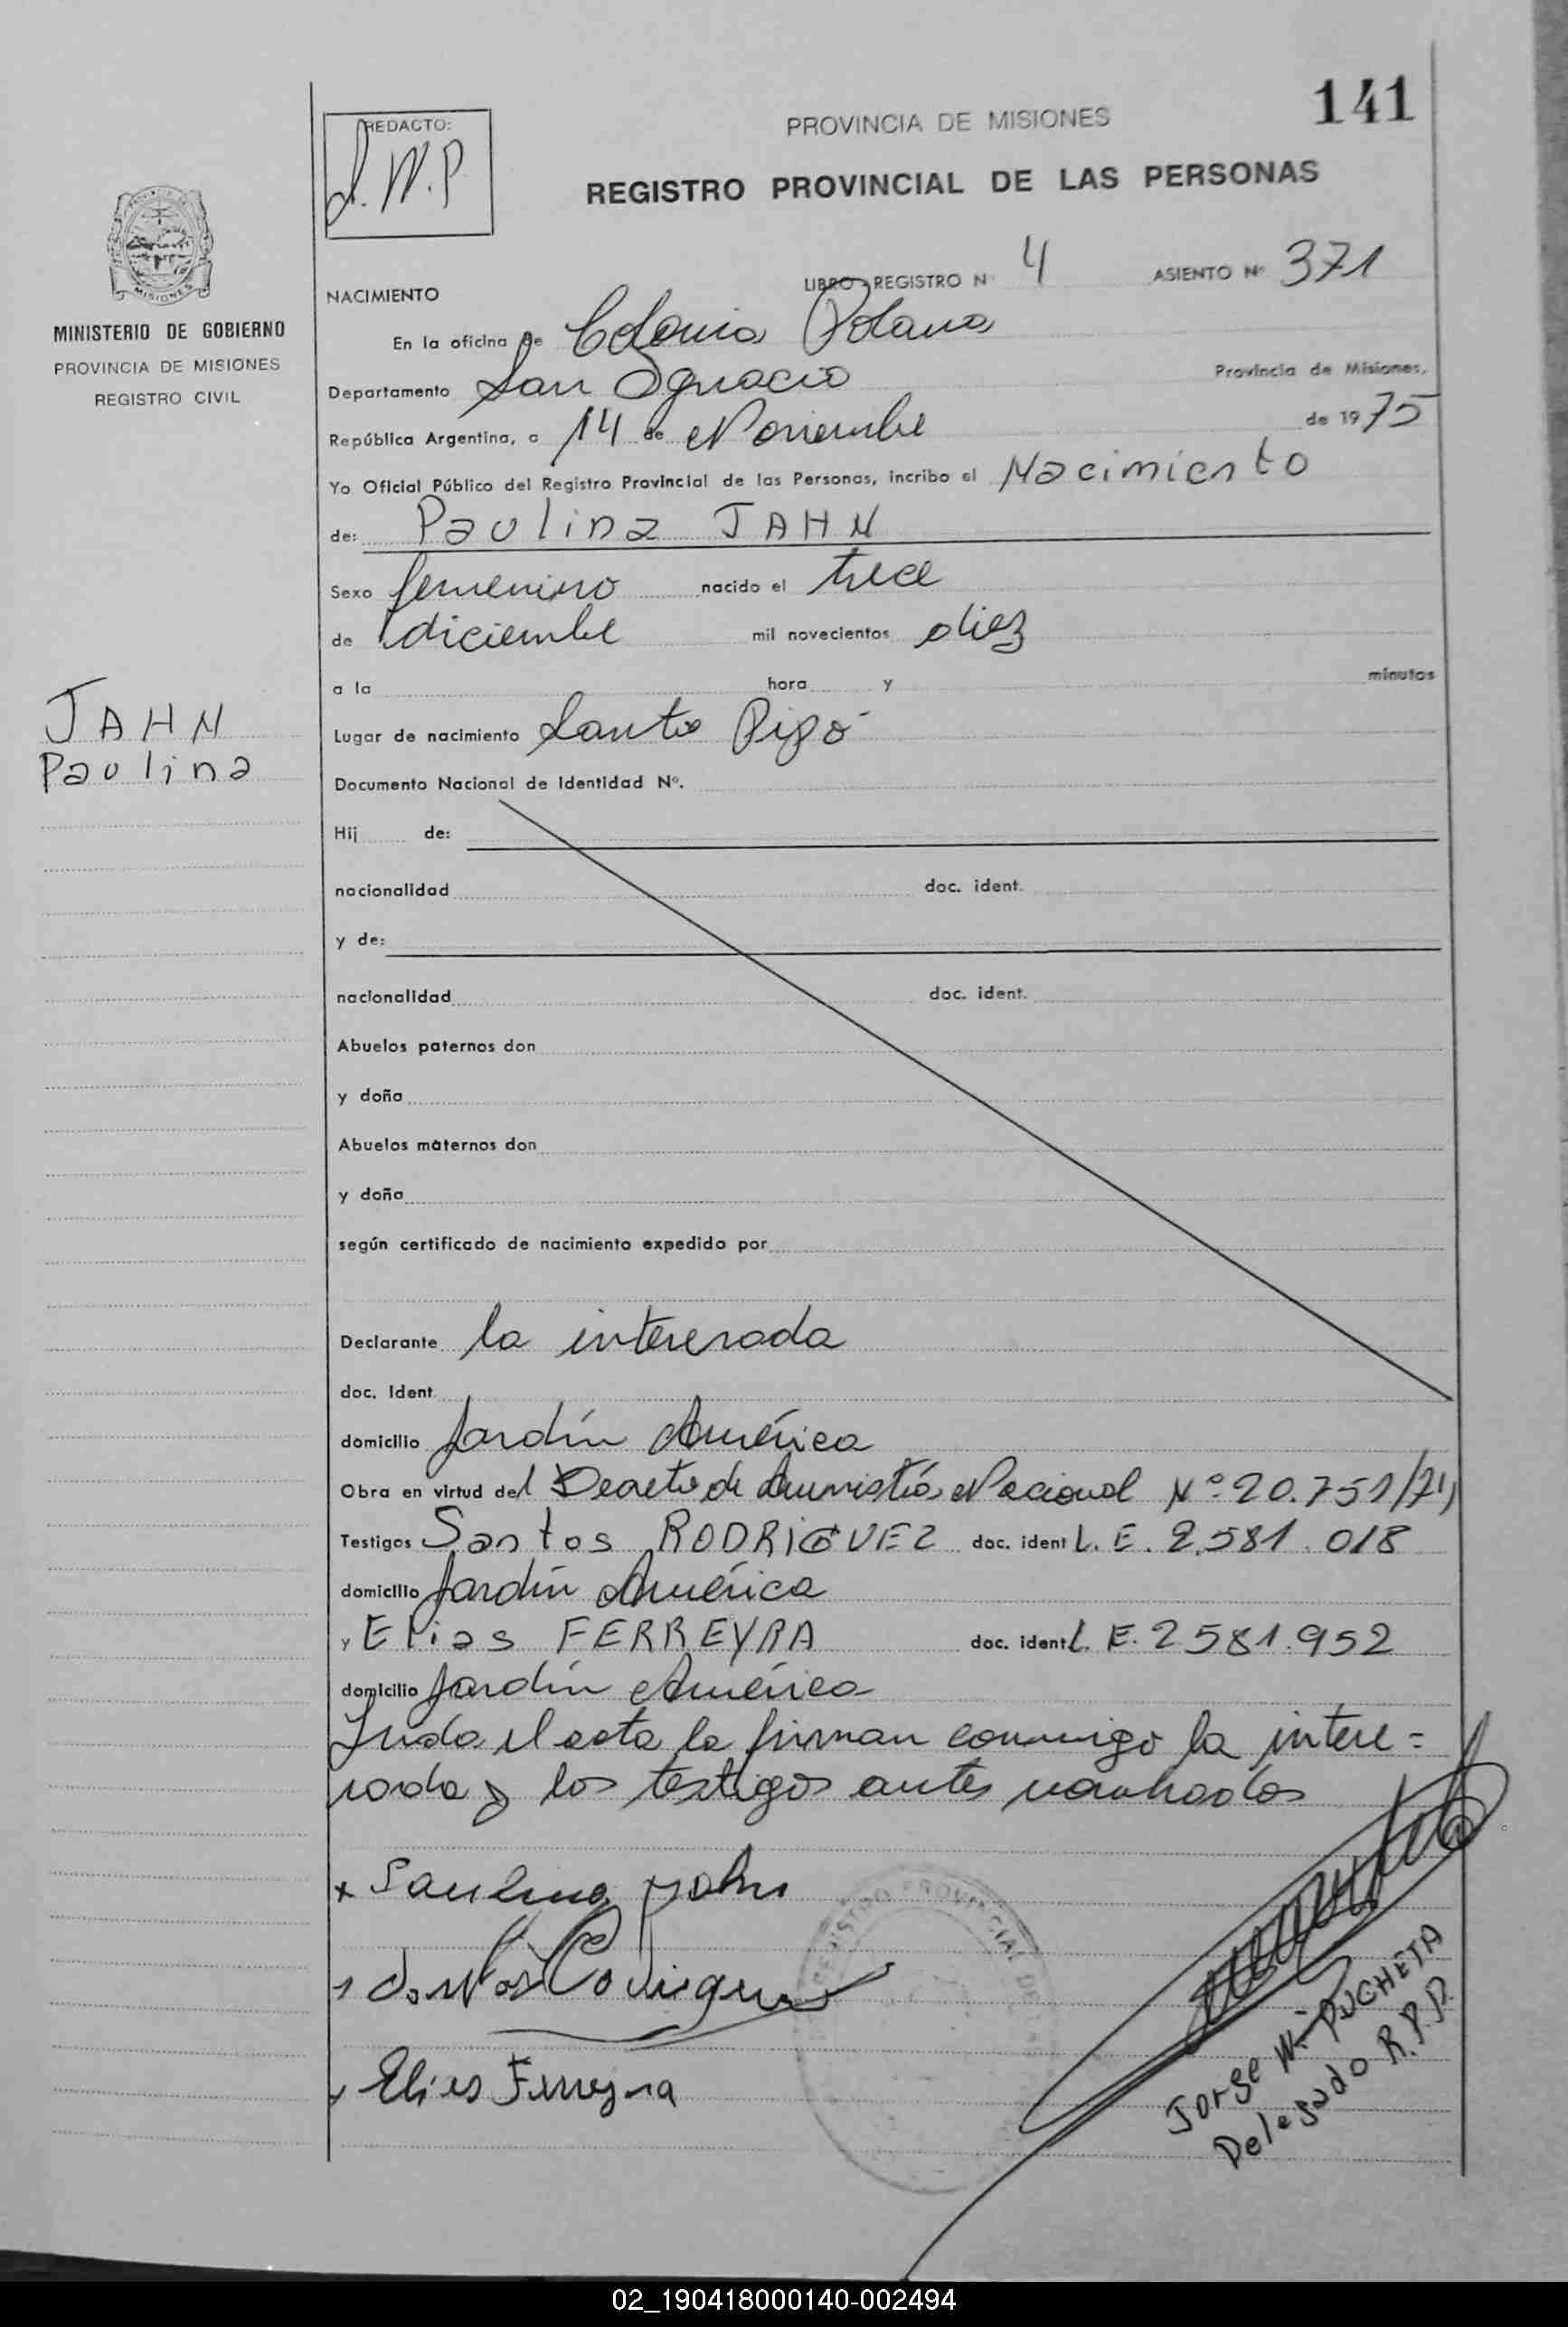 141
REDACTO:
J.M.P.
PROVINCIA DE MISIONES
REGISTRO PROVINCIAL DE LAS PERSONAS
MISIONES
MINISTERIO DE GOBIERNO
PROVINCIA DE MISIONES
REGISTRO CIVIL
NACIMIENTO
LIBRO - REGISTRO Nº 4 ASIENTO Nº 371
En la oficina de Colonia Polana
Departamento San Ignacio Provincia de Misiones,
República Argentina, a 14 de Noviembre de 1975
Yo Oficial Público del Registro Provincial de las Personas, incribo el Nacimiento
de: Paulina JAHN
Sexo femenino nacido el trece
de diciembre mil novecientos diez
a la hora y minutos
JAHN
Paulina
Lugar de nacimiento Santo Pipó
Documento Nacional de Identidad Nº.
Hij de:
nacionalidad doc. ident.
y de:
nacionalidad doc. ident.
Abuelos paternos don
y doña
Abuelos maternos don
y doña
según certificado de nacimiento expedido por
Declarante la interesada
doc. Ident
domicilio Jardín América
Obra en virtud del Decreto de Amnistía Nacional Nº 20.751/74
Testigos Santos RODRIGUEZ doc. ident L. E. 2.581.018
domicilio Jardín América
y Elias FERREYRA doc. ident L. E. 2581.952
domicilio Jardín América
Leida el acta la firman conmigo la intere=
sada y los testigos antes nombrados
x Paulina Jahn
Santos Rodriguez
Elias Ferreyra
REGISTRO PROVINCIAL DE LAS
Jorge M. PUCHETA
Delegado R.P.P.
02_190418000140-002494